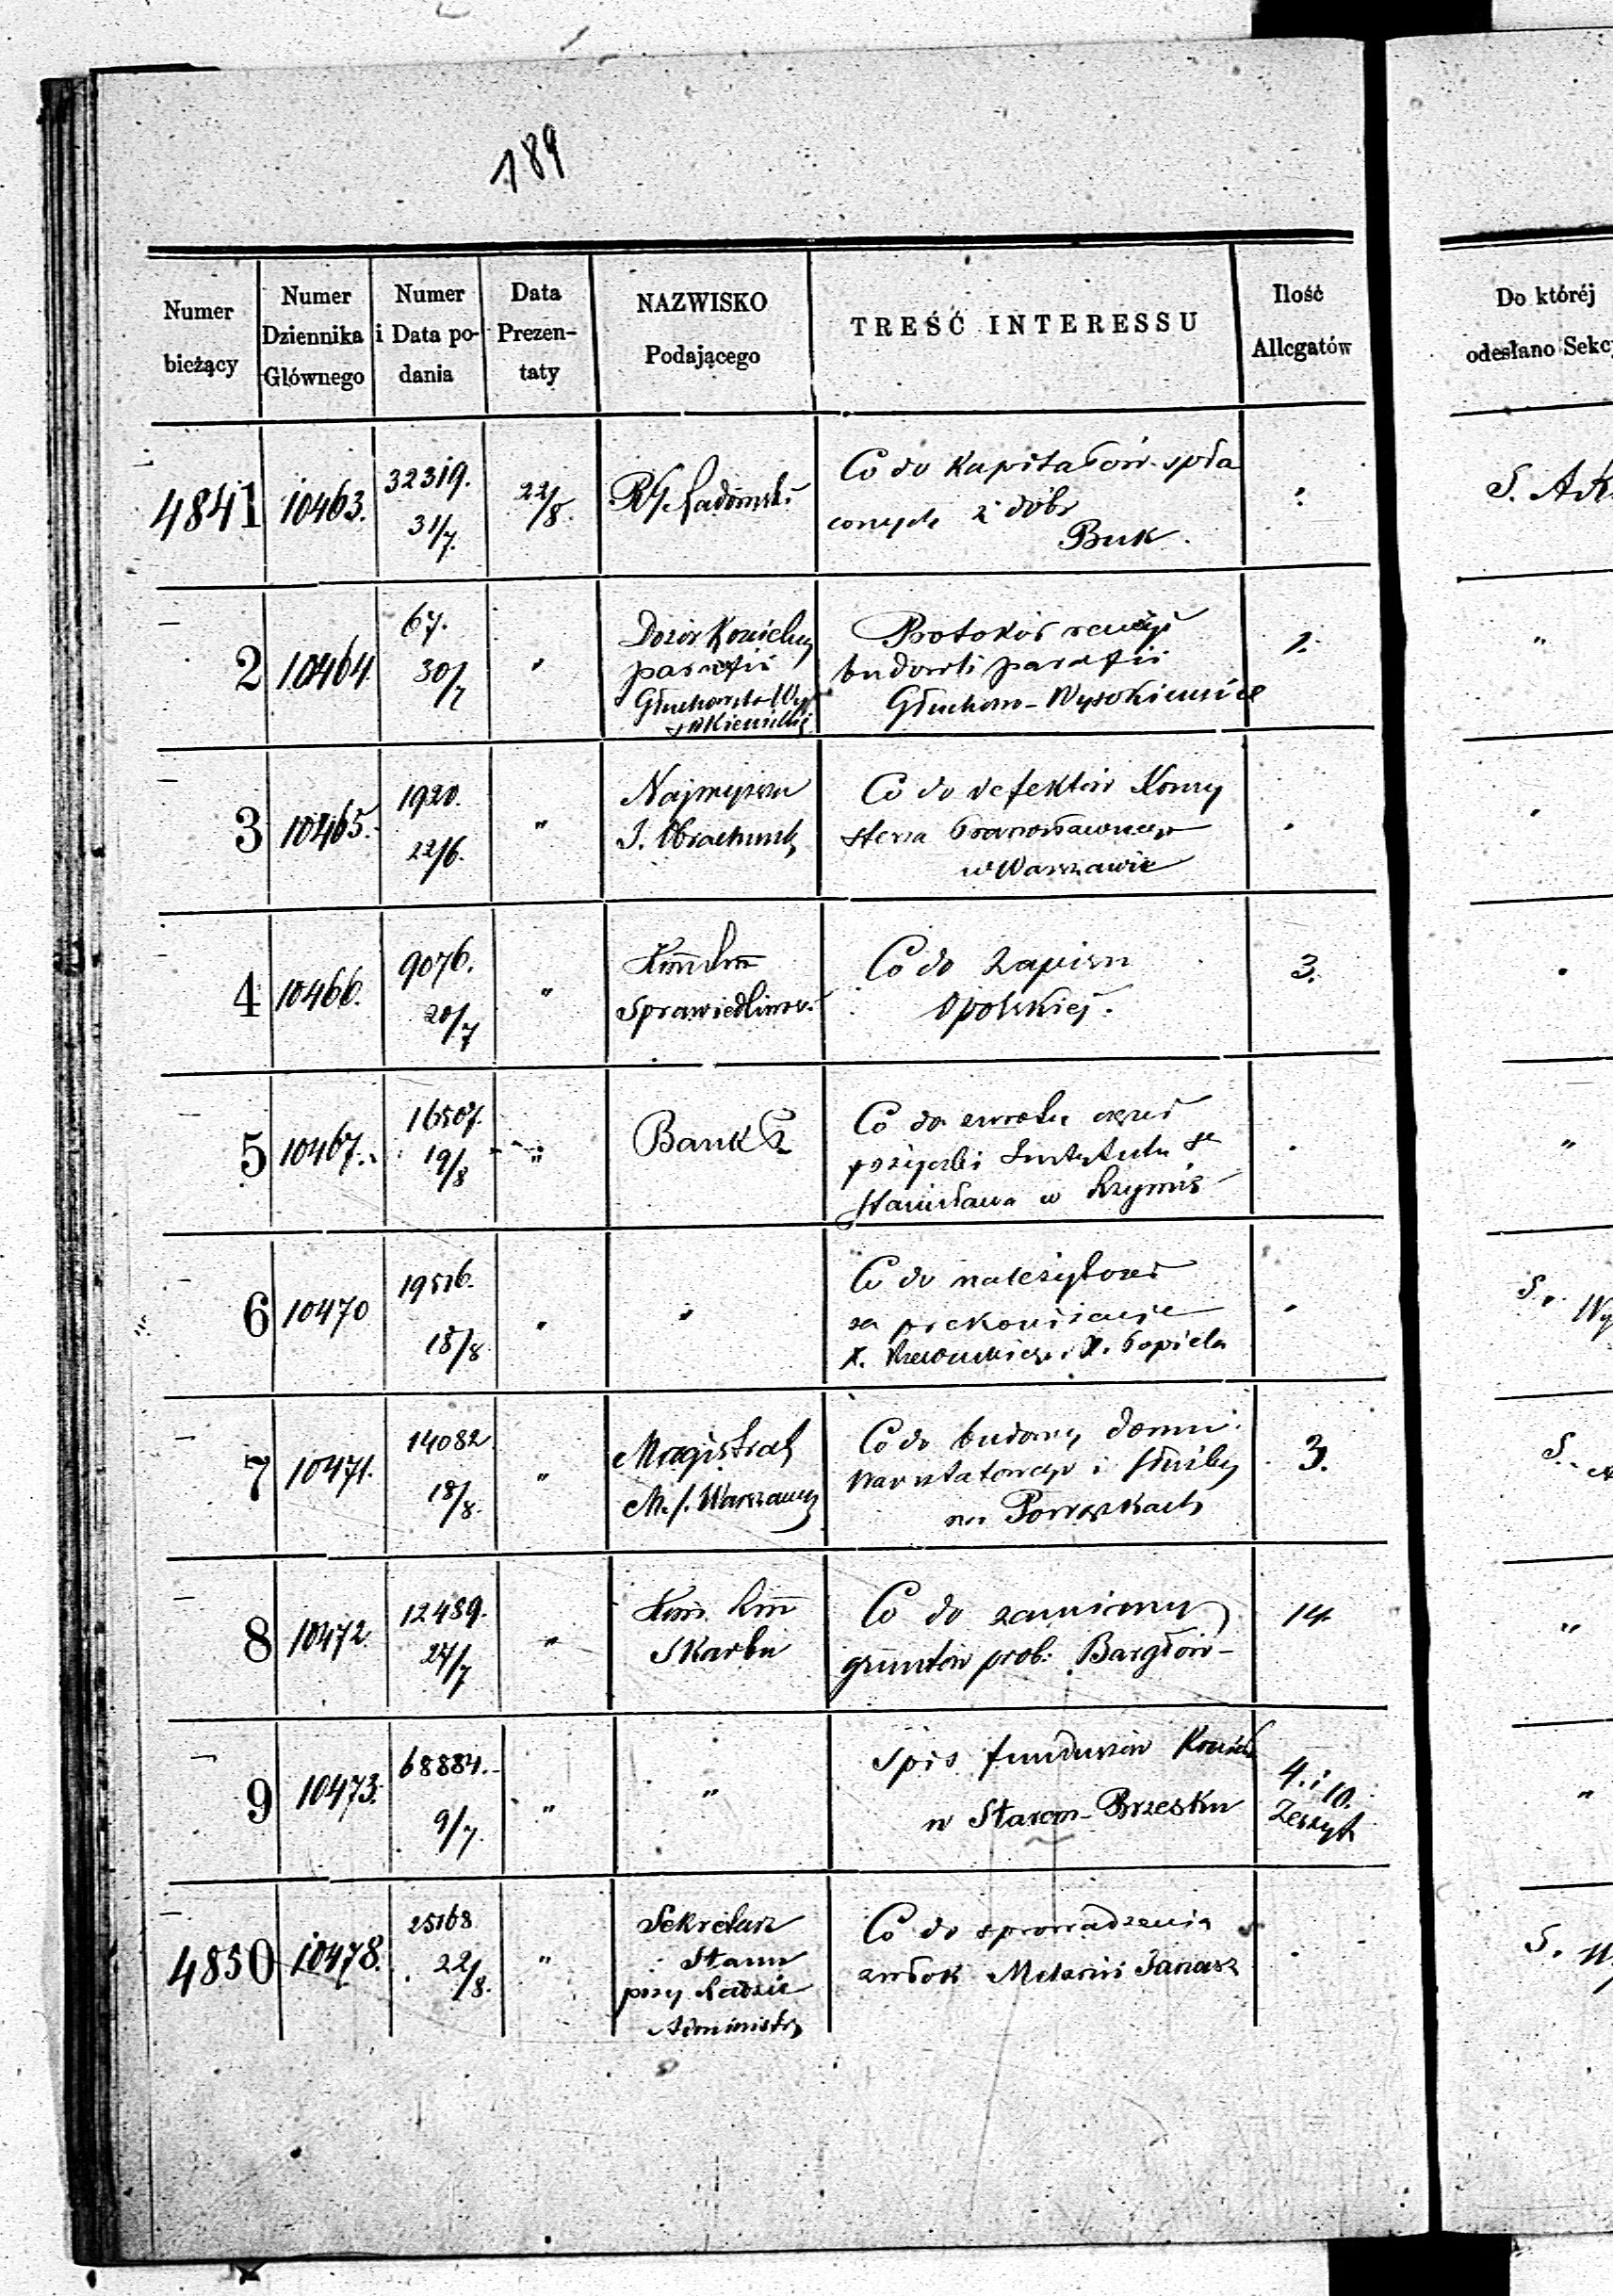 189
Numer bieżący
Numer Dziennika Głównego
Numer i Data podania
Data Prezentaty
NAZWISKO Podającego
TREŚĆ INTERESSU
Ilość Allegatów
Do któréj odesłano Sekcyi
4841 10463. 32319. 31/7. 22/8. Radomski
Co do Kapitałów spła
conych z dóbr
Buk.
S. AK
2 10464. 67. 30/7 "
Dozór Kościelny
parafii
Protokół rewizji
budowli parafii
Głuchow-Wysokienice
1.
"
3 10465. 1920. 22/6. "
Najwyższa
I. Obrachunk
Co do defektów Konsy
storza prawosławnego
w Warszawie
4 10466. 9076. 20/7 "
Sprawiedliwoś.
Co do Zapisu
Opolskiej.
3.
5 10467. 16507. 19/8 "
Bank P.
Co do zwrotu części
pożyczki Instytutu Sº
Stanisława w Rzymie
"
6 10470 19516. 18/8 " "
Co do należytości
za prekonizacje
X. Rzewuskiego i X. Popiela
S. Wy
7 10471. 14082 18/8. "
Magistrat
M. S. Warszawy
Co do budowy domu
warsztatowego i służby
na Powązkach
3.
S.
8 10472. 12489. 27/7 "
Kom. Rzą
Skarbu
Co do zamiany
gruntów prob: Bargłów-
14.
"
9 10473. 68884. 9/7. " "
Spis funduszów Kościo
w Starem-Brzesku
4. i 10.
Zeszyt
"
4850 10478. 25168 22/8. "
Sekretarz
Stanu
przy Radzie
Administr
Co do sprowadzenia
zwłok Melanii Janasz
S. W